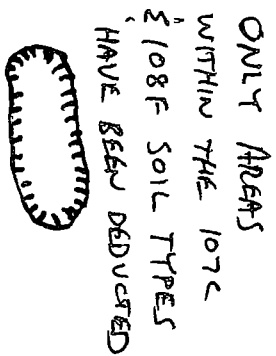 ONLY AREAS
WITHIN THE 107C
& 108F SOIL TYPES
HAVE BEEN DEDUCTED